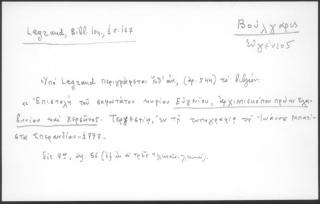 Legrand, Bibl. ion., 1, σ. 167
Βούλγαρις
Εὐγένιος
Ὑπὸ Legrand περιγράφεται ὑπ' ἀρ. (ἀρ. 544) τὸ βιβλίον
« Ἐπιστολὴ τοῦ σοφωτάτου κυρίου Εὐγενίου, ἀρχιεπισκόπου πρώην Σλα-
βινίου καὶ Χερσῶνος. Τεργεστίῳ, ἐν τῇ τυπογραφίᾳ τοῦ Ἰωάννου
στα Σπεραντίου 1797.
Εἰς 8ον, σελ. 56